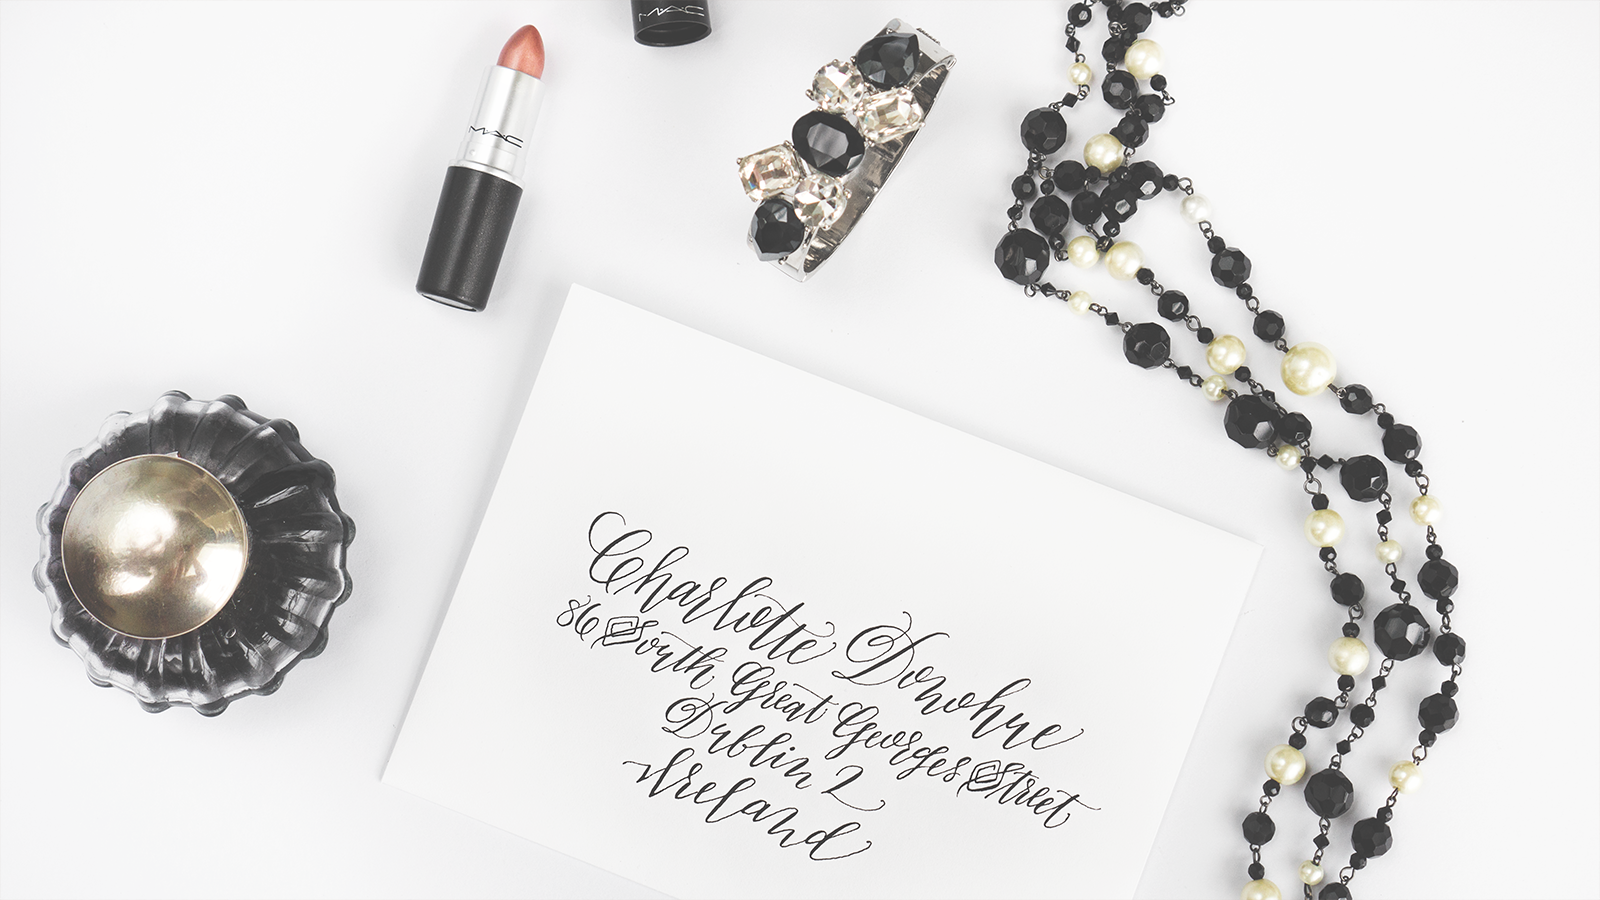 MAC
MAC
Charlotte Donohue
86 South Great Georges Street
Dublin 2
Ireland